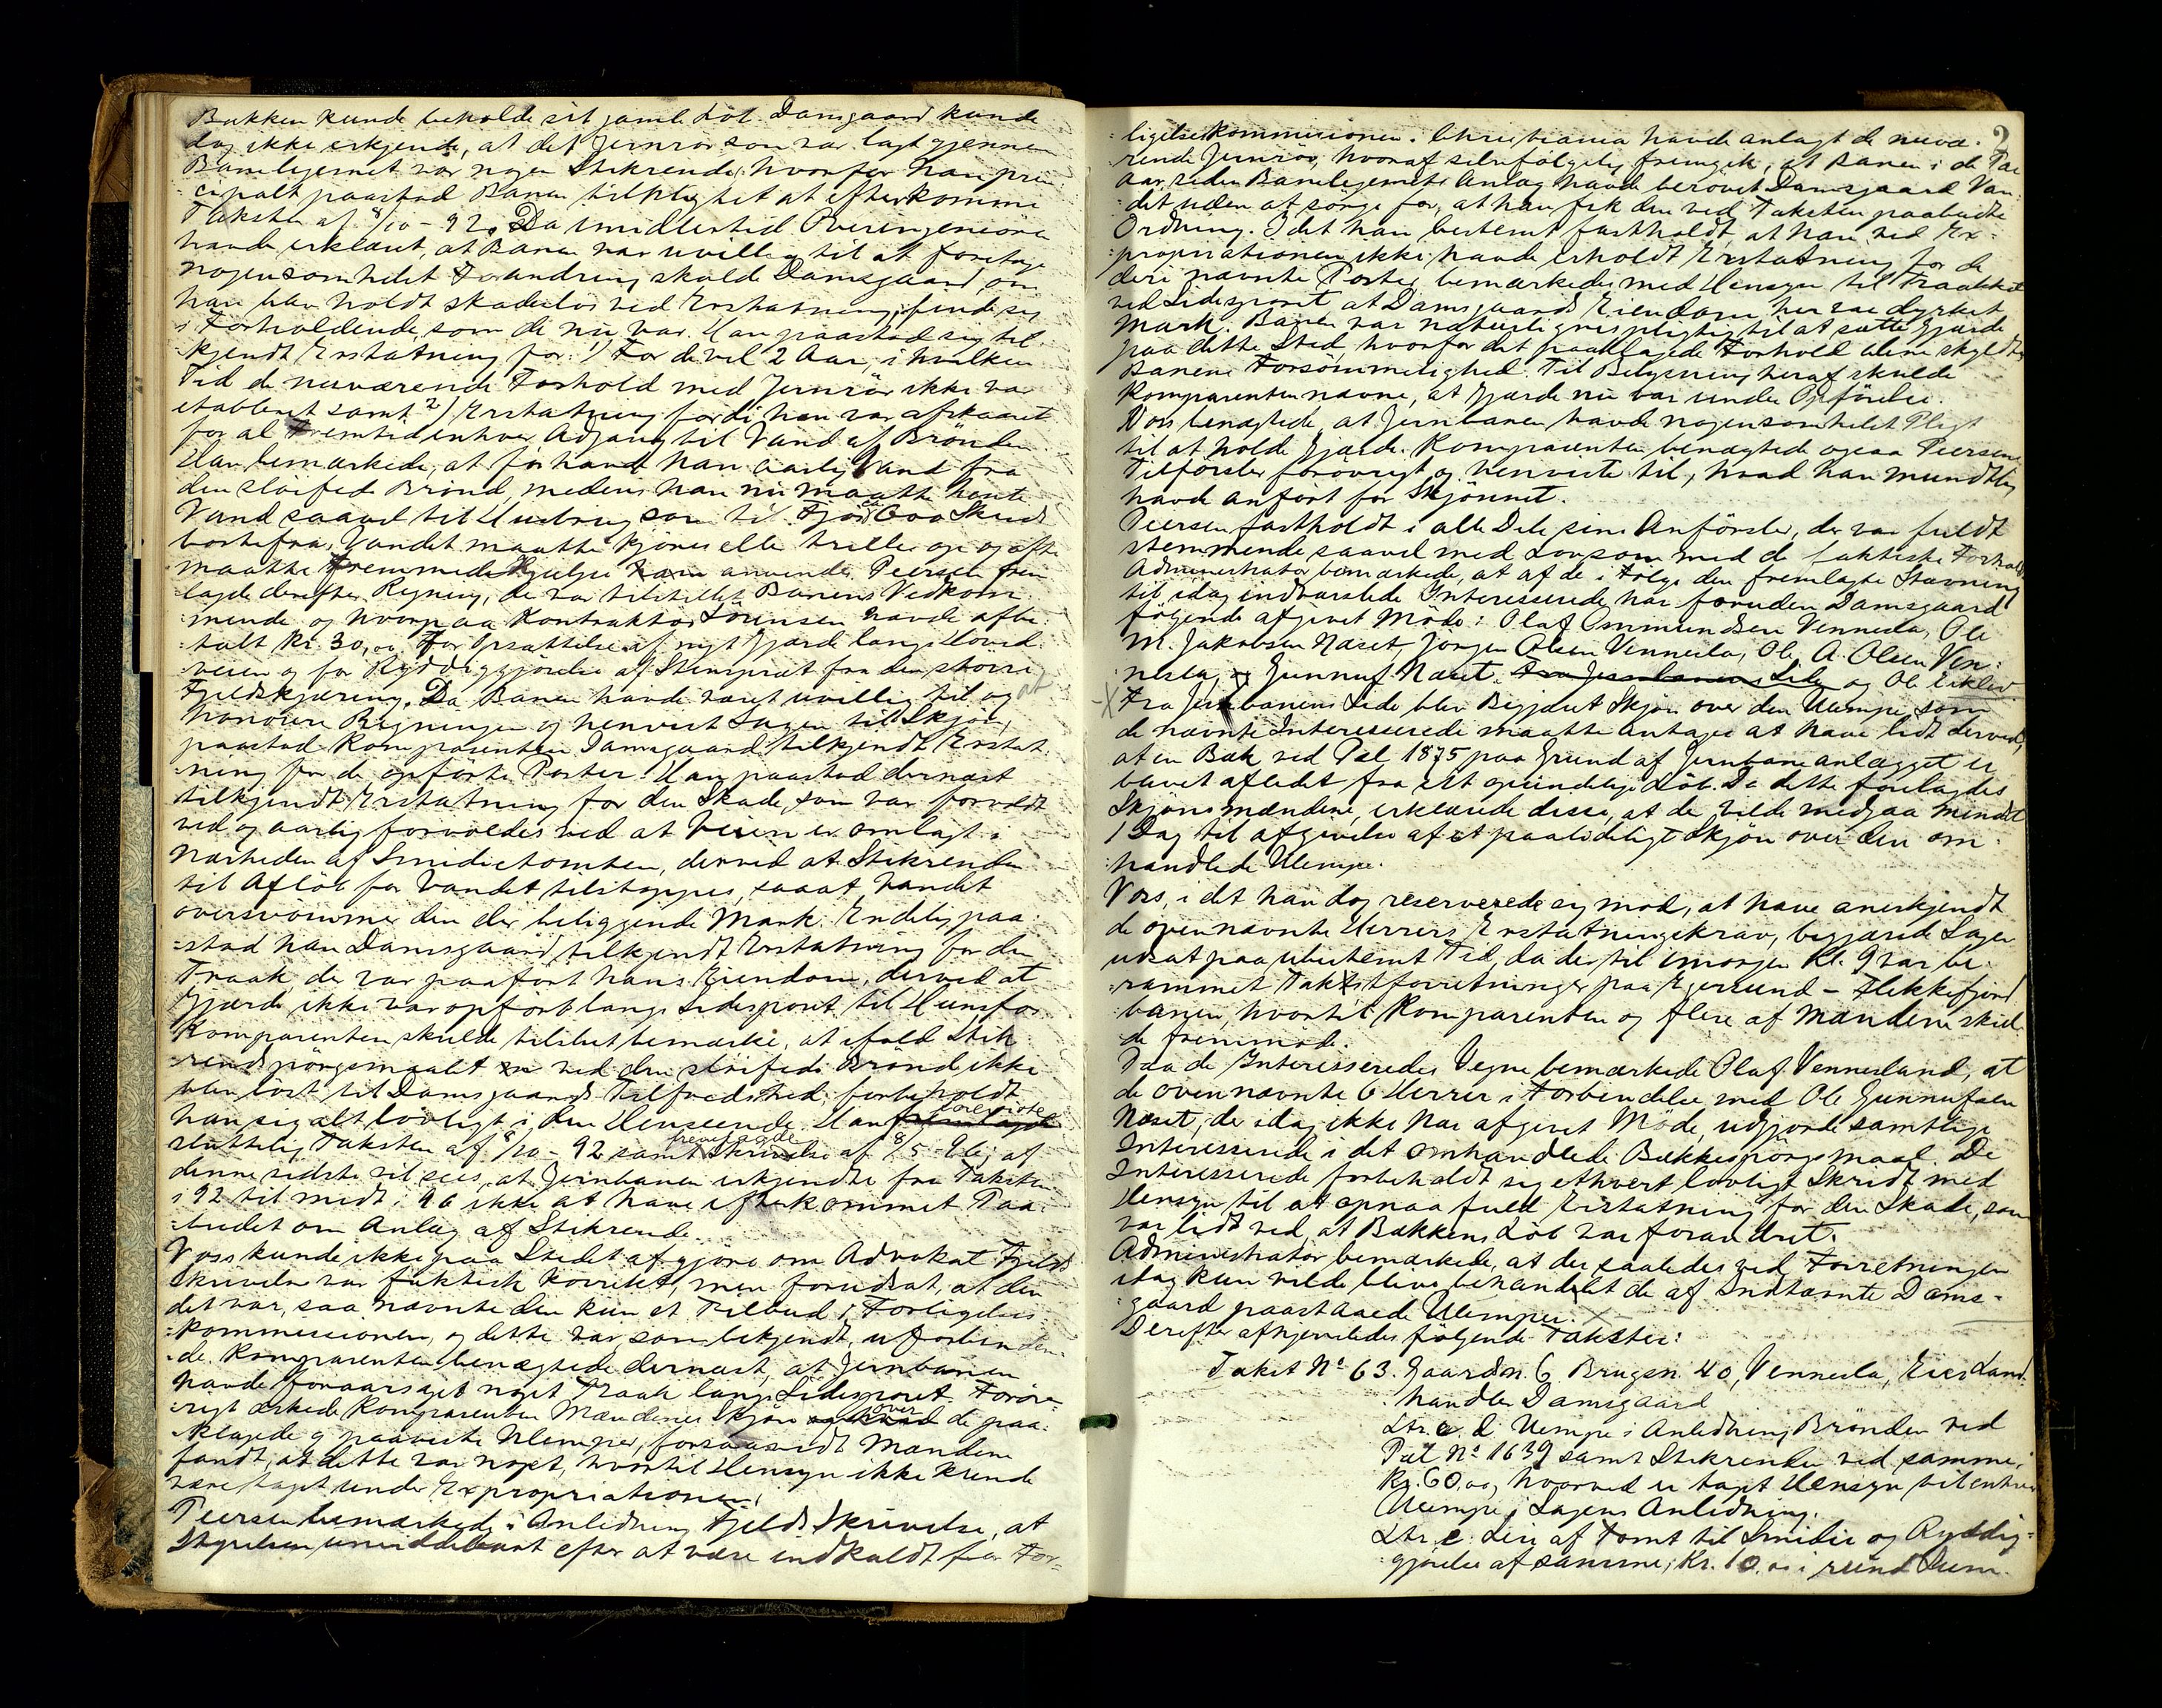 Bækken kunde beholde sit gamle Löb. Damgaard kunde
dog ikke erkjende, at det Jernrör som var lagt gjennem
Banelegemet var nogen Stikrende, hvorfor han prin-
cipalt paastod Banen tilpligtet at efterkomme
Taksten af 8/10 - 92. Da imidlertid Overingeniören
havde erklæret, at Banen var uvillig til at foretage
nogensomhelst Forandring skulde Damsgaard, om
han blev holdt skadeslös ved Erstatning, finde sig
i Forholdende, som de nu var. Han paastod sig til-
kjendt Erstatning for: 1) For de vel 2 Aar, i hvilken
Tid de nuværende Forhold med Jernrör ikke var
etableret samt 2) Erstatning fordi han var afskaaret
for al Fremtid enhver Adgang til Vand af Brönden.
Han bemærkede, at för havde han aarlig Vand fra
den slöifede Brönd, medens han nu maatte hente
Vand saavel til Husbrug som til Fjös 600 Skridt
bortefra. Vandet maatte kjöres eller trilles og ofte
maatte fremmed Hjælp anvendes. Peersen frem
lagde derefter Regning, der var tilstillet Banens Vedkom-
mende og hvorpaa Kontraktör Sörensen havde afbe-
talt Kr. 30,00 for Opsættelse af nyt Gjærde langs Hoved-
veien og for Ryddiggjörelse af Stensprut fra den större
Fjeldskjæring. Da Banen havde været uvillig til at
honorere Regningen og henvist Sagen til Skjön,
paastod Komparenten Damsgaard tilkjendt Erstat-
ning for de opförte Poster. Han paastod dernæst
tilkjendt Erstatning for den Skade, som var forvoldt
ved og aarlig forvoldes ved at Veien er omlagt i
Nærheden af Smidietomten, derved at Stikrenden
til Aflöb for Vandet tilstoppes, saaat Vandet
oversvömmer den der beliggende Mark. Endelig paa-
stod han Damsgaard tilkjendt Erstatning for den
Traak, der var paafört hans Eiendom, derved at
Gjærde ikke var opfört langs Sidesporet til Hunsfos.
Komparenten skulde tilslut bemærke, at ifald Stik-
rendspörgsmaalet ved den slöifede Brönd ikke
blev löst til Damsgaards Tilfredshed, forbeholdt
han sig alt lovligt i den Henseende. Han foreviste
sluttelig Taksten af 8/10 - 92 samt fremlagde Skrivelse af 8/5 - 96; af
denne sidste vil sees, at Jernbanen erkjendte fra Taksten
i 92 til midt i 96 ikke at have efterkommet Paa-
budet om Anlæg af Stikrende.
Voss kunde ikke paa Stedet afgjöre om Advokat Fjelds
Skrivelse var faktisk korrekt, men forudsat, at den
det var, saa nævnte den kun et Tilbud i Forligelses-
kommissionen, og dette var, som bekjendt, uforbinden-
de. Komparenten benægtede dernæst, at Jernbanen
havde foraarsaget noget Traak langs Sidesporet. Foröv-
rigt æskede Komparenten Mændenes Skjön over de paa-
klagede og paaviste Ulemper, forsaavidt Mændene
fandt, at dette var noget, hvortil Hensyn ikke kunde
være taget under Expropriationen.
Peersen bemærkede i Anledning Fjelds Skrivelse, at
Styrelsen umiddelbart efter at være indkaldt for For-
ligelseskommissionen i Christiania havde anlagt de nuvæ-
rende Jernrör, hvoraf selvfölgelig fremgik, at Banen i de Par
Aar siden Banelegemets Anlæg havde berövet Damsgaard Van-
det uden at sörge for, at han fik den ved Taksten paabudte
Ordning. Idet han bestemt fastholdt, at han ved Ex-
propriationen ikke havde erholdt Erstatning for de
deri nævnte Poster, bemærkedes med Hensyn til Traakket
ved Sidesporet at Damsgaards Eiendom her var dyrket
Mark. Banen var naturligvis pligtig til at sætte Gjærde
paa dette Sted, hvorfor det paaklagede Forhold alene skyldtes
Banens Forsömmelighed. Til Belysning heraf skulde
Komparenten nævne, at Gjærde nu var under Opförelse.
Voss benægtede, at Jernbanen havde nogensomhelst Pligt
til at holde Gjærde. Komparenten benægtede ogsaa Peersens
Tilförsler forövrigt og henviste til, hvad han mundtlig
havde anfört for Skjönnet.
Peersen fastholdt i alle Dele sine Anförsler, der var fuldt
stemmende saavel med Lov som med de faktiske Forhold.
Administrator bemærkede, at af de i Fölge den fremlagte Stævning
til idag indvarslede Interesserede har foruden Damsgaard
fölgende afgivet Möde: Olaf Ommundsen Vennesla, Ole
M. Jakobsen Næset, Jörgen Olsen Vennesla, Ole A. Olsen Ven-
nesla, Gunnuf Næset. Fra Jernbanens Side og Ole Eikeland
X Fra Jernbanens Side blev Begjæret Skjön over den Ulempe, som
de nævnte Interesserede maatte antages at have lidt derved,
at en Bæk ved Pæl 1875 paa Grund af Jernbaneanlægget er
blevet afledet fra sit oprindelige Löb. Da dette forelagdes
Skjönsmændene, erklærede disse, at de vilde medgaa mindst
1 Dag til afgivelse af et paalideligt Skjön over den om-
handlede Ulempe.
Voss, i det han dog reserverede sig mod, at have anerkjendt
de ovennævnte Herrers Erstatningskrav, begjærede Sagen
udsat paa ubestemt Tid, da der til imorgen Kl. 9 var be-
rammet Takstforretninger paa Egersund - Flekkefjord
banen, hvortil Komparenten og flere af Mændene skul-
de fremmöde.
Paa de Interesseredes Vegne bemærkede Olaf Vennesland, at
de ovennævnte 6 Herrer i Forbindelse med Ole Gunnufsen
Næset, der idag ikke har afgivet Möde, udgjorde samtlige
Interesserede i det omhandlede Bækkespörgsmaal. De
Interesserede forbeholdt sig ethvert lovligt Skridt med
Hensyn til at opnaa fuld Erstatning for den Skade, som
var lidt ved, at Bækkens Löb var forandret.
Administrator bemærkede, at der saaledes ved Forretningen
idag kun vilde blive behandlet de af Indtævnte Dams-
gaard paastaaede Ulemper. X
Derefter afhjemledes fölgende Takster:
Takst No 63. Gaardsn. 6 Brugsn. 40, Vennesla, Eier Land-
handler Damsgaard
Ltr. d. Ulempe i Anledning Brönden ved
Pæl No 1639 samt Stikrenden ved samme,
Kr. 60,00, hvorved er taget Hensyn til enhver
Ulempe i Sagens Anledning.
Ltr. e. Leie af Tomt til Smidie og Ryddig-
gjörelse af samme, Kr. 10.00 i rund Sum.